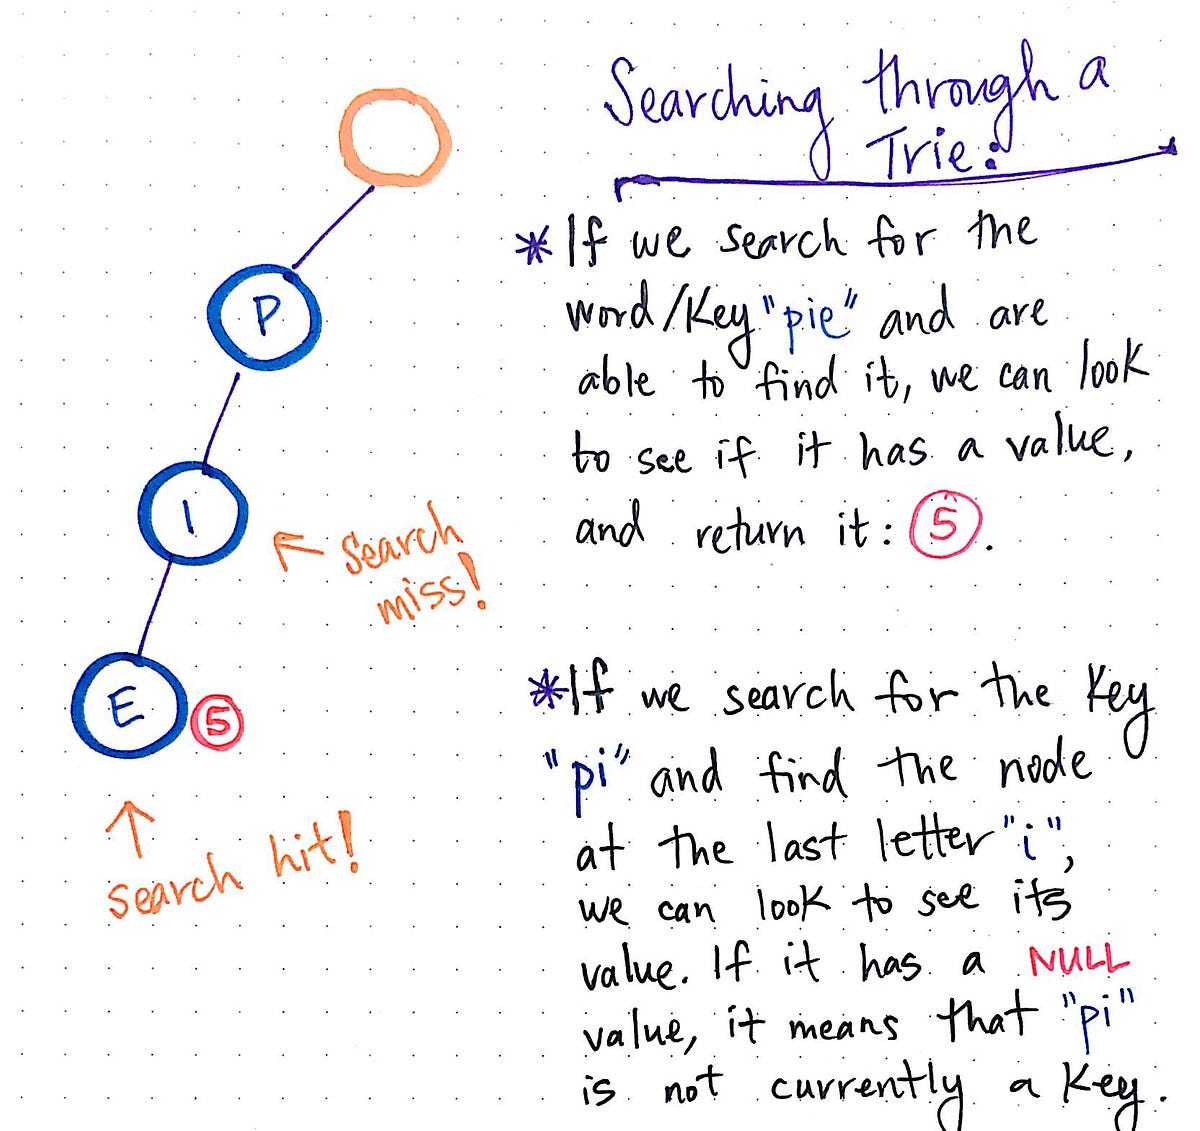 Searching through a
Trie:
*If we search for the
word/key "pie" and are
able to find it, we can look
to see if it has a value,
and return it: 5.
*If we search for the key
"pi" and find the node
at the last letter "i",
we can look to see its
value. If it has a NULL
value, it means that "pi"
is not currently a key.
P
I
search
miss!
E 5
search hit!